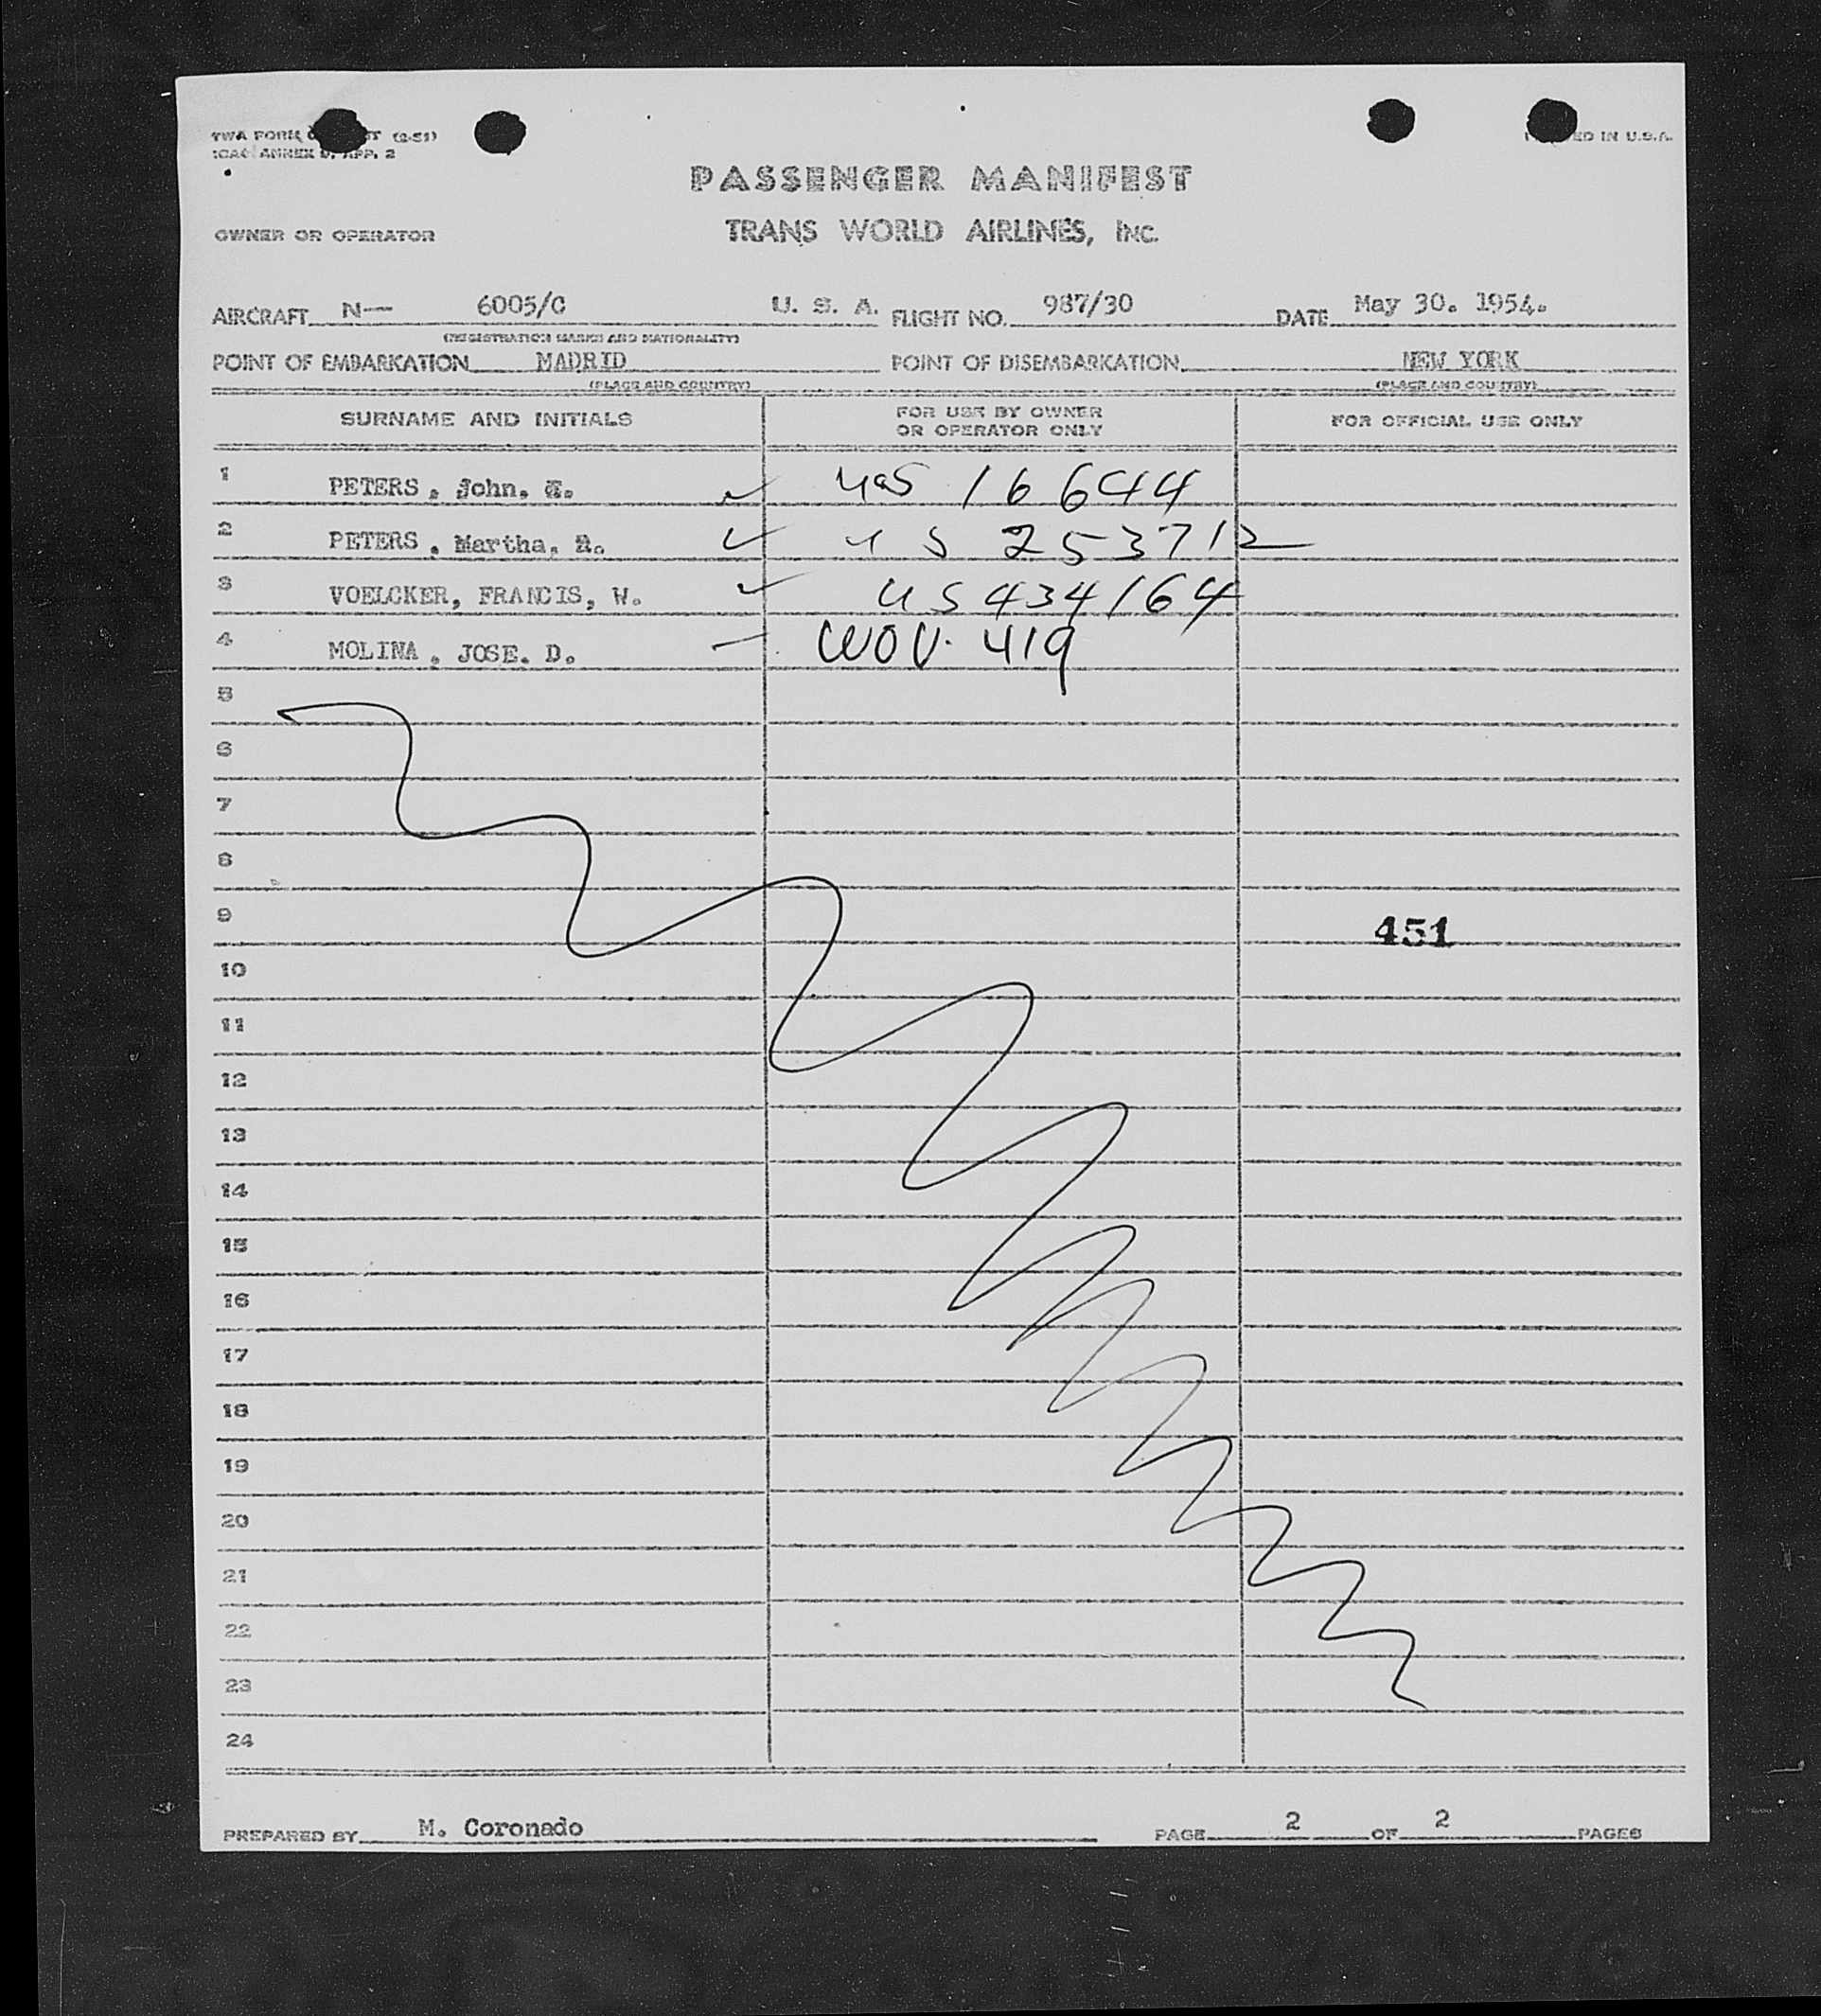 TWA FORM (2-51)
ICAO ANNEX 9, APP. 2
PRINTED IN U.S.A.
PASSENGER MANIFEST
OWNER OR OPERATOR TRANS WORLD AIRLINES, INC.
AIRCRAFT N— 6005/C U. S. A. FLIGHT NO. 987/30 DATE May 30. 1954.
(REGISTRATION MARKS AND NATIONALITY)
POINT OF EMBARKATION MADRID POINT OF DISEMBARKATION NEW YORK
(PLACE AND COUNTRY) (PLACE AND COUNTRY)
SURNAME AND INITIALS FOR USE BY OWNER OR OPERATOR ONLY FOR OFFICIAL USE ONLY
1 PETERS, John. ✓ 16644
2 PETERS, Martha, ✓ US 253712
3 VOELCKER, FRANCIS, W. ✓ US 434164
4 MOLINA, JOSE. D. — 419
5
6
7
8
9 451
10
11
12
13
14
15
16
17
18
19
20
21
22
23
24
PREPARED BY M. Coronado PAGE 2 OF 2 PAGES